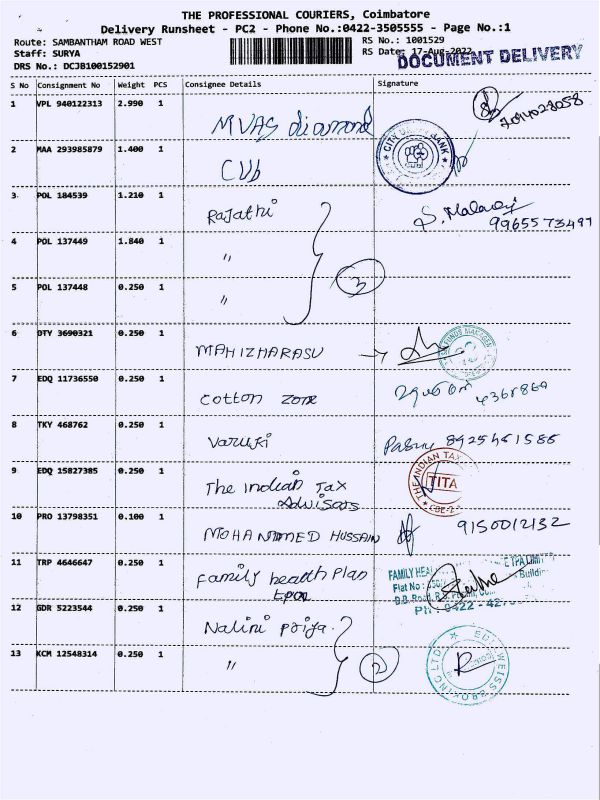 THE PROFESSIONAL COURIERS, Coimbatore
Delivery Runsheet - PC2 - Phone No.:0422-3505555 - Page No.:1
Route: SAMBANTHAM ROAD WEST
RS No.: 1001529
Staff: SURYA
RS Date: 17-Aug-2022
DOCUMENT DELIVERY
DRS No.: DCJB100152901
S No Consignment No Weight PCS Consignee Details Signature
1 VPL 940122313 2.990 1 MVAS diamond
2 MAA 293985879 1.400 1 CUb CITY UNION BANK
3 POL 184539 1.210 1 Rajathi S. Malar 9965573497
4 POL 137449 1.840 1 "
3
5 POL 137448 0.250 1 "
6 DTY 3690321 0.250 1 MAHIZHARASU
7 EDQ 11736550 0.250 1 Cotton zone
8 TKY 468762 0.250 1 Varuki
9 EDQ 15827385 0.250 1 The indian Tax THE INDIAN TAX
Advisors TITA
10 PRO 13798351 0.100 1 MOHAMMED HUSSAIN 9150012132
11 TRP 4646647 0.250 1 Family health Plan FAMILY
Flat No
12 GDR 5223544 0.250 1 Nalini Priya
2
13 KCM 12548314 0.250 1 " EDELWEISS BROKING LTD